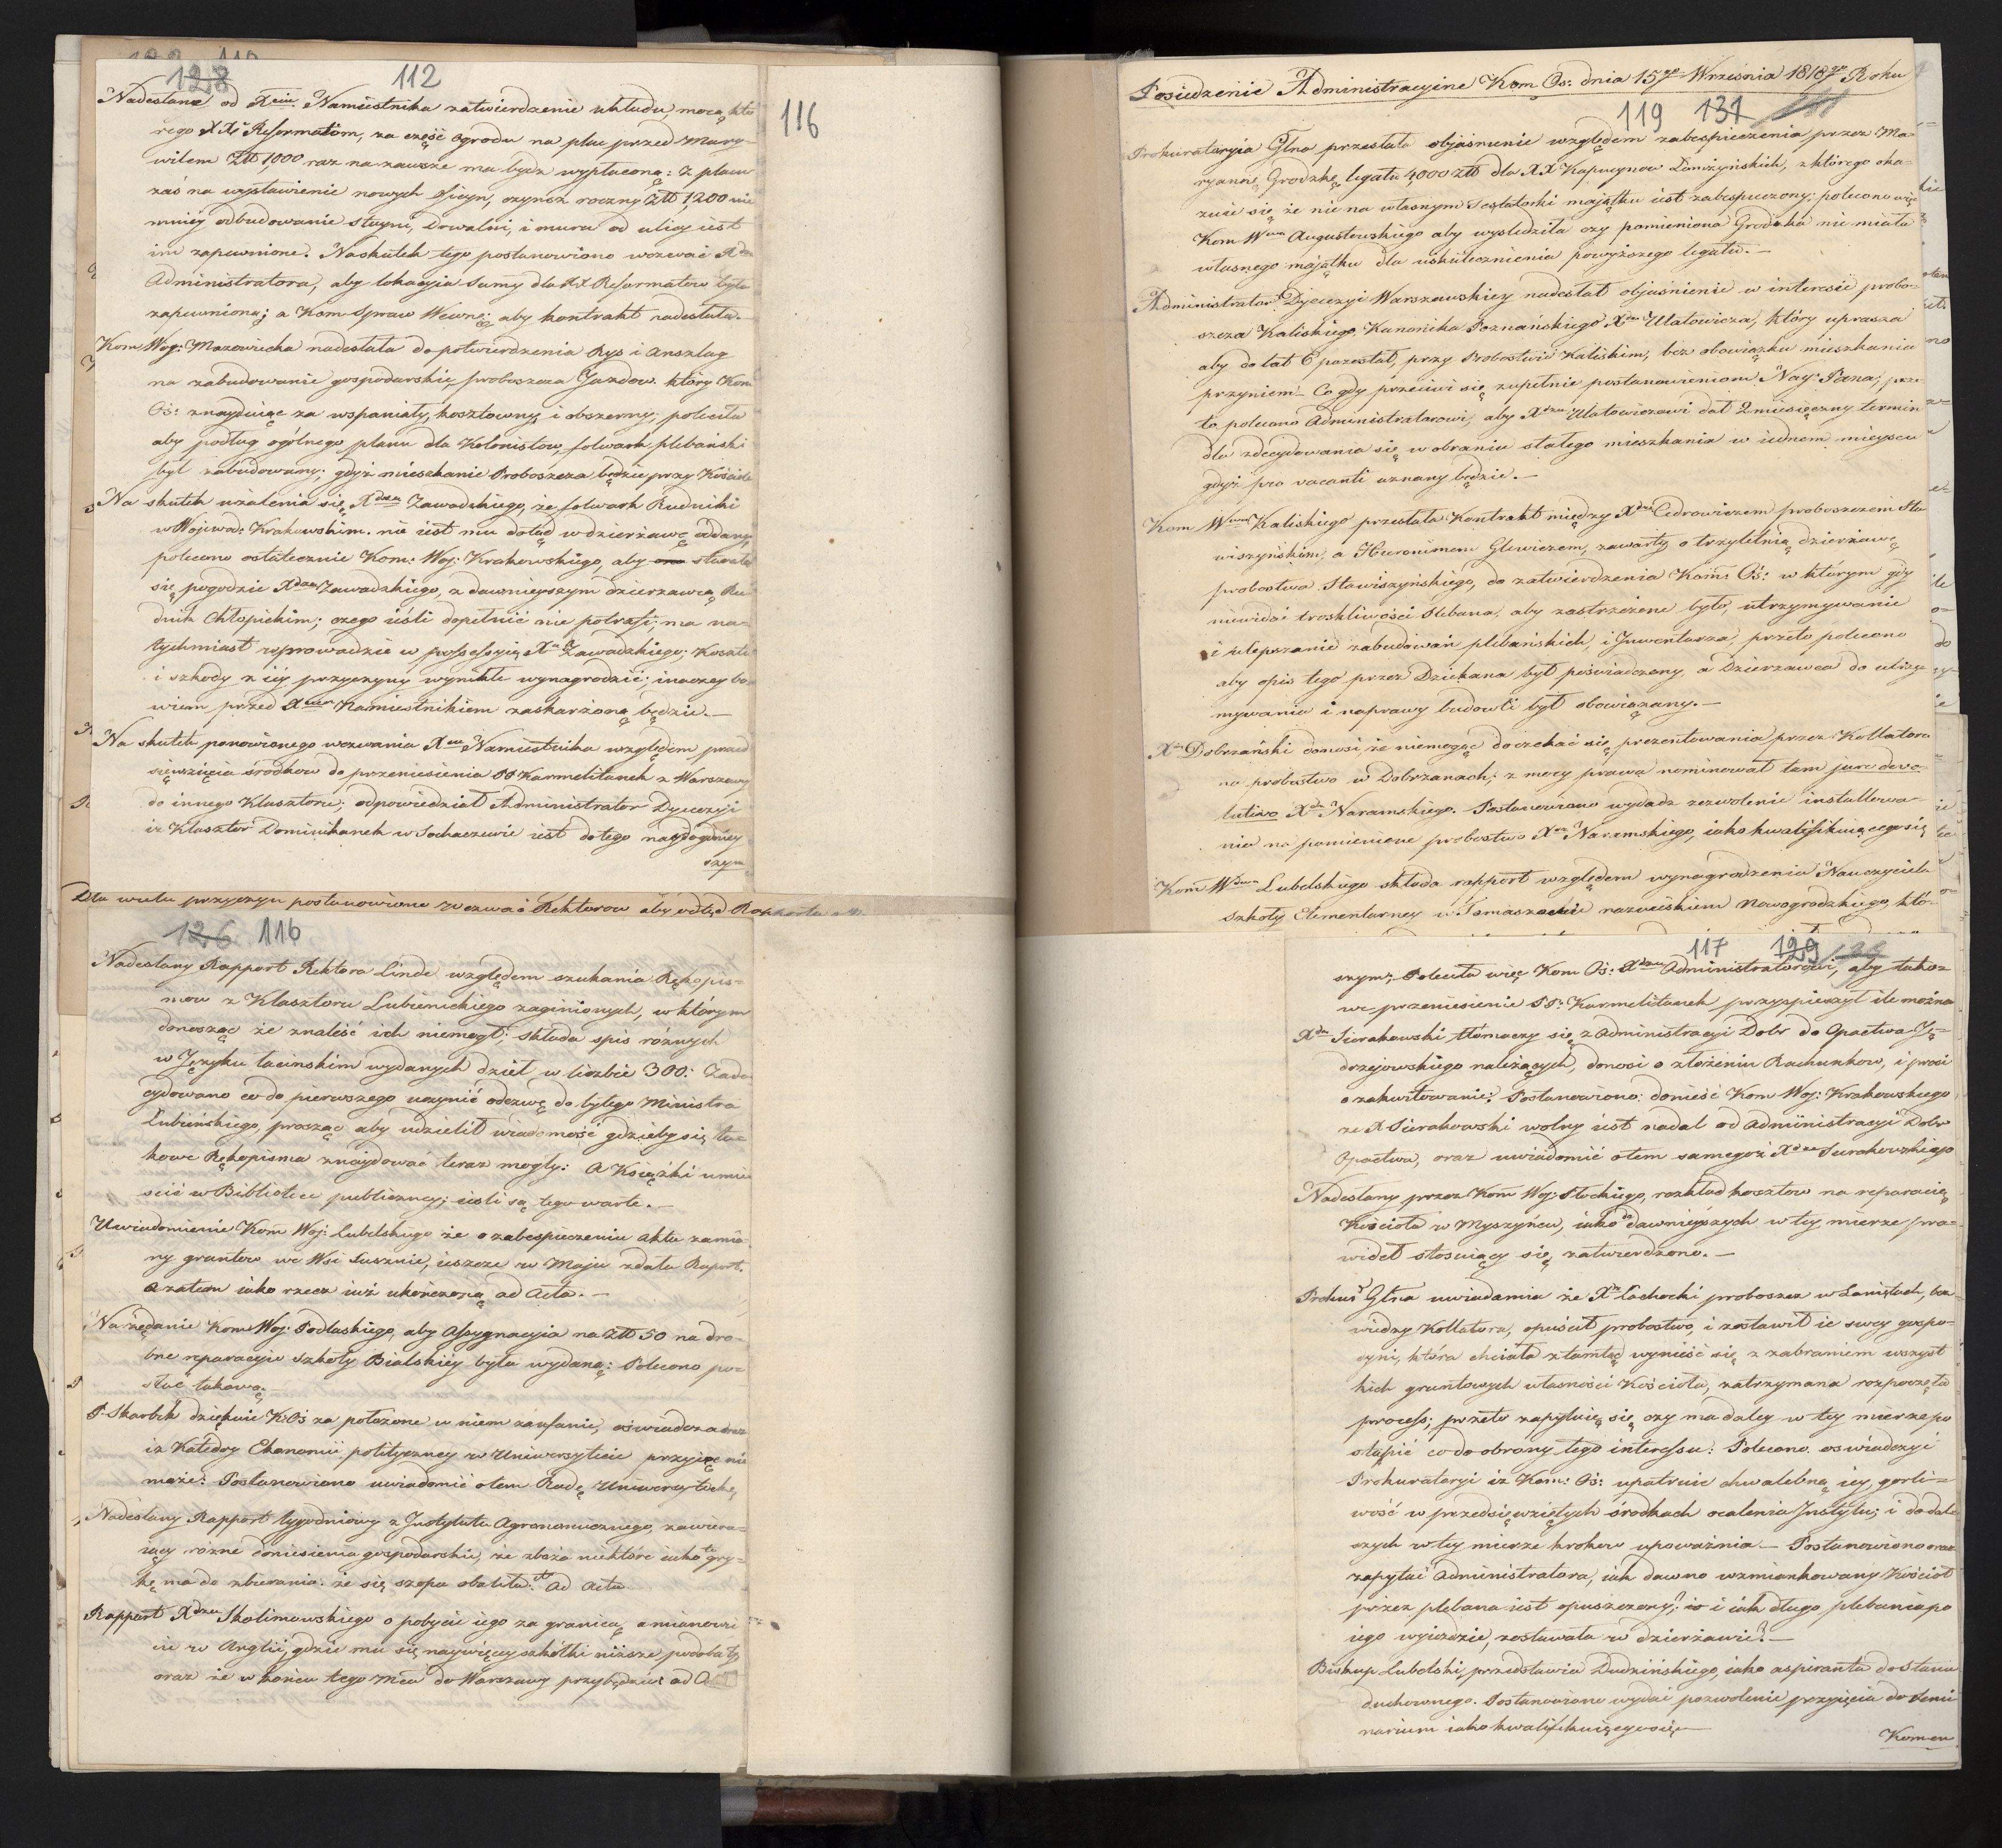 128 112
Nadesłane od Xcia Namiestnika zatwierdzenie układu, mocą któ
rego XX. Reformatom, za część ogrodu na plac przed Mary-
wilem Złł 1,000 raz na zawsze ma bydz wypłaconą: Z placu
zaś na wystawienie nowych , czynsz roczny Złł 1200 nie
mniéy odbudowanie stayni, Drwalni, i muru od ulicy iest
im zapewnione. Naskutek tego postanowiono wezwać Xdza
Administratora, aby lokacyia Sumy dla XX Reformatow była
zapewnioną; a Kom. Spraw Wewnę: aby kontrakt nadesłała.
Kom Woj: Mazowiecka nadesłała do potwierdzenia Rys i anszlag
na zabudowanie gospodarskie proboszcza Jazdow. który Kom
Oś: znayduiąc za wspaniały, kosztowny, i obszerny; poleciła
aby podług ogólnego planu dla Kolonistow, folwark plebański
był zabudowany; gdyż mieszkanie Proboszcza będzie przy Kościele
Na skutek użalenia się Xdza Zawadzkiego, że folwark Rudniki
w Wojewodz: Krakowskim. nie iest mu dotąd w dzierżawę oddany,
polecono ostatecznie Kom: Woj: Krakowskiego, aby starała
się pogodzić Xdza Zawadzkiego, z dawnieyszym dzierżawcą Ru
dnik Chłopickim; czego ieśli dopełnić nie potrafi; ma na=
tychmiast wprowadzić w possessyią Xa Zawadzkiego; Koszta
i szkody z iéy przyczyny wynikłe wynagrodzić; inaczey bo=
wiem przed Xciem Namiestnikiem zaskarżoną będzie.—
Na skutek ponowionego wezwania Xcia Namiestnika względem przed
sięwzięcia środkow do przeniesienia SS Karmelitanek z Warszawy
do innego Klasztoru; odpowiedział Administrator Dyecezyi
iż Klasztor Dominikanek w Sochaczewie iest do tego naydogodniey
szym
Dla wielu przyczyn postanowiono wezwać Rektorow aby odtąd Rapporta
126 116
Nadesłany Rapport Rektora Linde względem szukania Rękopis=
mow z Klasztoru Lubienickiego zaginionych, w którym
donosząc że znaleść ich niemógł; składa spis różnych
w Języku łacińskim wydanych dzieł w liczbie 300: Zade
cydowano co do pierwszego uczynić odezwę do byłego Ministra
Łubieńskiego, prosząc aby udzielił wiadomość gdzieby się ta=
kowe Rękopisma znaydować teraz mogły: A Książki umie
ścić w Bibliotece publiczney; ieśli są tego warte.—
Uwiadomienie Kom Woj: Lubelskiego że o zabespieczeniu aktu zamia
ny gruntow we Wsi Susznie, ieszcze w Maju zdała Raport.
a zatem iako rzecz iuż ukończoną ad Acta.—
Na żądanie Kom Woj: Podlaskiego, aby Assygnacyia na Złł 50 na dro=
bne reparacyie Szkoły Bialskiéy była wydaną: Polecono po=
słać takową.—
P. Skarbek dziękuie K: Oś za położone w niem zaufanie, oświadcza oraz
iż Katedry Ekonomii polityczney w Uniwersytecie przyiąć nie
może: Postanowiono uwiadomić o tem Radę Uniwersytecką
Nadesłany Rapport tygodniowy z Instytutu Agronomicznego, zawiera=
iący różne doniesienia gospodarskie, że zboża niektóre iako to gry=
kę ma do zbierania. że się szopa obaliła: Ad Acta
Rapport Xdza Skolimowskiego o pobycie iego za granicą, a mianowi
cie w Anglii, gdzie mu się naywięcey szkółki niższe podobały
oraz że w końcu tego Mca do Warszawy przybędzie: ad A
116
Posiedzenie Administracyine Kom Oś: dnia 15go Września 1818go Roku
119 131
Prokuratoryia Głna przesłała obiaśnienie względem zabespieczenia przez Ma=
ryannę Grodzką legatu 4,000 złł dla XX Kapucynow Łomżyńskich, z którego oka=
zuie się że nie na własnym Testatorki maiątku iest zabespieczony; polecono więc
Kom Wwa Augustowskiego aby wyśledziła czy pomieniona Grodzka nie miała
własnego maiątku dla uskutecznienia powyższego legatu.—
Administrator Dyecezyi Warszawskiey nadesłał obiaśnienie w interesie probo=
szcza Kaliskiego, Kanonika Poznańskiego Xdza Ulatowicza, który uprasza
aby do lat 6 pozostał, przy Probostwie Kaliskim, bez obowiązku mieszkania
przyniem. Co gdy przeciwi się zupełnie postanowieniom Nay: Pana; prze
to polecono Administratorowi, aby Xdzu Ulatowiczowi dał 2 miesięczny termin
dla zdecydowania się w obraniu stałego mieszkania w iednem mieyscu
gdyż pro vacanti uznany będzie.—
Kom Wwa Kaliskiego przesłała Kontrakt między Xdzem Cedrowiczem proboszczem Sta
wiszyńskim, a Hieronimem Glewiczem, zawarty o trzyletnią dzierżawę
probostwa Stawiszyńskiego, do zatwierdzenia Kom: Oś: w którym gdy
niewidać troskliwości Plebana, aby zastrzeżone było, utrzymywanie
i ulepszanie zabudowań plebańskich, i Inwentarza, przeto polecono
aby opis tego przez Dziekana był poświadczony, a Dzierżawca do utrzy
mywania i naprawy budowli był obowiązany.—
Xdz Dobrzański donosi że niemogąc doczekać się prezentowania przez Kollatora
na probostwo w Dobrzanach; z mocy prawa nominował tam jure devo=
lutivo Xdza Naramskiego. Postanowiono wydadz zezwolenie installowa=
nia na pomienione probostwo Xdza Naramskiego, iako kwalifikuiącego się
Kom Wdzwa Lubelskiego składa rapport względem wynagrodzenia Nauczyciela
Szkoły Elementarney w Tomaszowie nazwiskiem Nowogrodzkiego, któ=
117 129
szym; Poleciła więc Kom Oś: Xdzu Administratorowi, aby tako=
we przeniesienie SS: Karmelitanek przyspieszył ile można
Xdz Sierakowski tłómaczy się z administracyi Dobr do Opactwa Ję=
drzejowskiego należących, donosi o złożeniu Rachunkow, i prosi
o zakwitowanie: Postanowiono: donieść Kom Woj: Krakowskiego
że X Sierakowski wolny iest nadal od Administracyi Dobr
Opactwa, oraz uwiadomić o tem samegoż Xdza Sierakowskiego
Nadesłany przez Kom Woj: Płockiego, rozkład kosztow na reparacią
Kościoła w Myszyńcu, iako do dawnieyszych w tey mierze pra=
wideł stosuiący się, zatwierdzono.—
Prokur Głna uwiadamia że Xdz Lachocki proboszcz w Łaniętach, bez
wiedzy Kollatora, opuścił probostwo, i zostawił ie swey gospo=
dyni, która chciała ztamtąd wynieść się z zabraniem wszyst
kich gruntowych własności Kościoła, zatrzymana rozpoczęła
process; przeto zapytuie się, czy ma daley w tey mierze po
stąpić co do obrony tego interessu: Polecono oświadczyć
Prokuratoryi iż Kom: Oś: upatruie chwalebną iey, gorli=
wość w przedsięwziętych środkach ocalenia Instytu; i do dal
szych w tey mierze krokow upoważnia.— Postanowiono oraz
zapytać Administratora, iak dawno wzmiankowany Kościoł
przez plebana iest opuszczony? i iak długo plebania po
iego wyieździe, zostawała w dzierżawie?—
Biskup Lubelski, przedstawia Dudzińskiego, iako aspiranta do Stanu
duchownego. Postanowiono wydać pozwolenie przyięcia do Semi
narium iako kwalifikuiącego się—
Komen